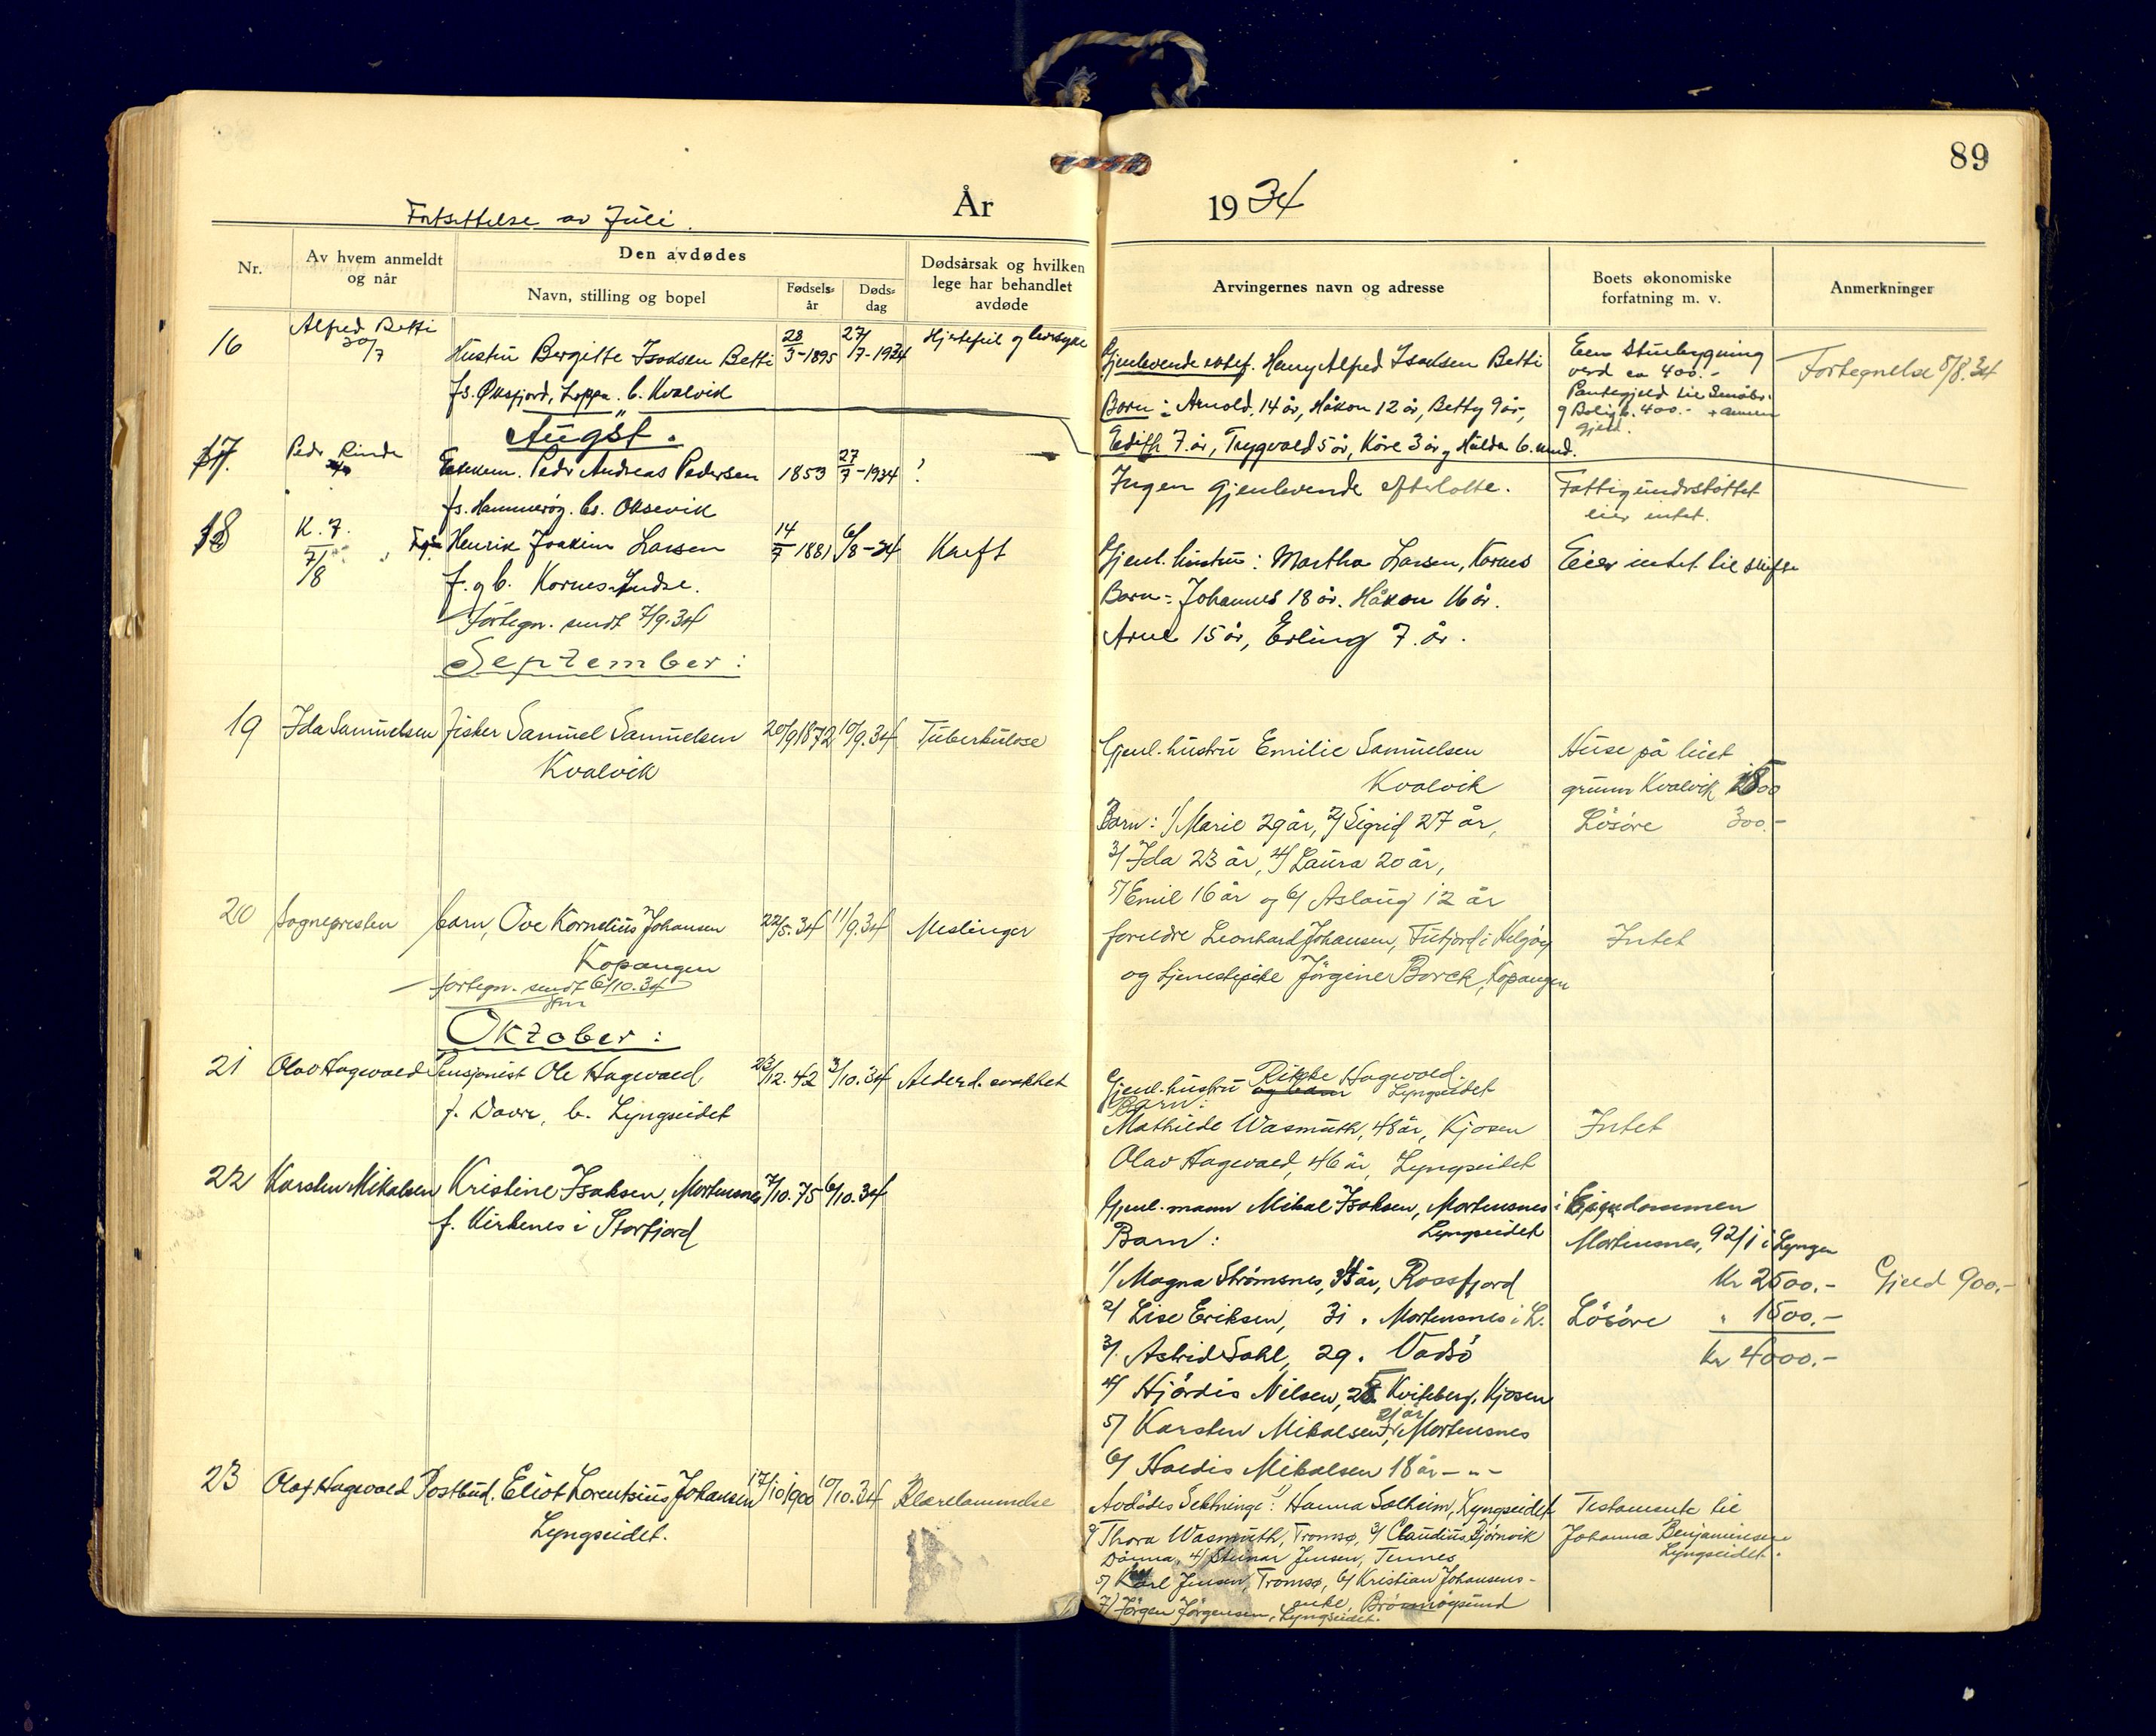 89
År 1934
Fortsettelse av Juli.
Nr.
Av hvem anmeldt og når
Den avdødes
Navn, stilling og bopel
Fødsels-år
Døds-dag
Dødsårsak og hvilken lege har behandlet avdøde
Arvingernes navn og adresse
Boets økonomiske forfatning m. v.
Anmerkninger
16
Alfred Betti
30/7
Hustru Bergitte Isaksen Betti
fs. Øksfjord, Loppa. b. Kvalvik
28/3-1895
27/7-1934
Hjertefeil og
Gjenlevende ektef. Henry Alfred Isaksen Betti
Barn: Arnold 14 år, Håkon 12 år, Betty 9 år,
Edith 7 år, Trygvald 5 år, Kåre 3 år og Hulda 6 mnd.
Een Stuebygning
verd ca 400.-
Pantegjeld til Småbr.
og Bolig b. 400.- + annen
gjeld.
Fortegnelse 8/8.34
August.
17.
Peder Rinde
Enkem. Peder Andreas Pedersen
fs. Hammerøy. bs. Oksevik
1853
27/7-1934
?
Ingen gjenlevende efterlatte.
Fattigunderstøttet
eier intet.
18
K. F.
7/8
Henrik Joakim Larsen
f. og b. Kornes-Indse.
14/7 1881
6/8-34
Kreft
Gjenl. hustru: Martha Larsen, Kornes
Barn: Johannes 18 år. Håkon 16 år.
Arne 15 år, Erling 7 år.
Eier intet til skifte
fortegn. sendt 7/9.34
September:
19
Ida Samuelsen
Fisker Samuel Samuelsen
Kvalvik
20/9 1872
10/9.34
Tuberkulose
Gjenl. hustru Emilie Samuelsen
Kvalvik
Barn: 1/ Marie 29 år, 2/ Sigrid 27 år,
3/ Ida 23 år, 4/ Laura 20 år,
5/ Emil 16 år og 6/ Aslaug 12 år
Huse på leiet
grunn Kvalvik
Løsøre 300.-
20
Sognepresten
barn, Ove Kornelius Johansen
Kopangen
22/5.34
11/9.34
Meslinger
foreldre Leonhard Johansen, Futfjord i Helgøy
og tjenestepike Jørgine Borck, Kopangen
Intet
fortegn. sendt 6/10.34
Oktober:
21
Olav Hagevold
Pensjonist Ole Hagevold,
f. Dovre, b. Lyngseidet
23/12.42
3/10.34
Alderd. svakhet
Gjenl. hustru Rikke Hagevold.
Lyngseidet
Barn:
Mathilde Wasmuth, 48 år, Kjosen
Olav Hagevold, 46 år, Lyngseidet
Intet
22
Karsten Mikalsen
Kristine Isaksen, Mortensnes
f. Kirkenes i Storfjord
7/10.75
6/10.34
Gjenl. mann Mikal Isaksen, Mortensnes i
Lyngseidet
Barn:
1/ Magna Strømsnes, år, Rossfjord
2/ Lise Eriksen, 31 " Mortensnes i L.
3/ Astrid Dahl, 29. Vadsø
4/ Hjørdis Nilsen, Kviteberg, Kjosen
5/ Karsten Mikalsen, Mortensnes
6/ Haldis Mikalsen 18 år - " -
Eiendommen
Mortensnes, 92/1 i Lyngen
Kr 2500.-
Løsøre " 1500.-
Kr 4000.-
Gjeld 900.-
23
Olaf Hagevold
Postbud. Eliot Lorentsius Johansen
Lyngseidet.
17/10 1900
10/10.34
Blærelammelse
Avdødes Sektninge: 1/ Hanna Solheim, Lyngseidet
2/ Thora Wasmuth, Tromsø, 3/ Claudius Bjørnvik
Dønna, 4/ Steinar Jensen, Tennes
5/ Karl Jensen, Tromsø, 6/ Kristian Johansens
enke, Brønnøysund
7/ Jørgen Jørgensen, Lyngseidet.
Testamente til
Johanna Benjaminsen
Lyngseidet.